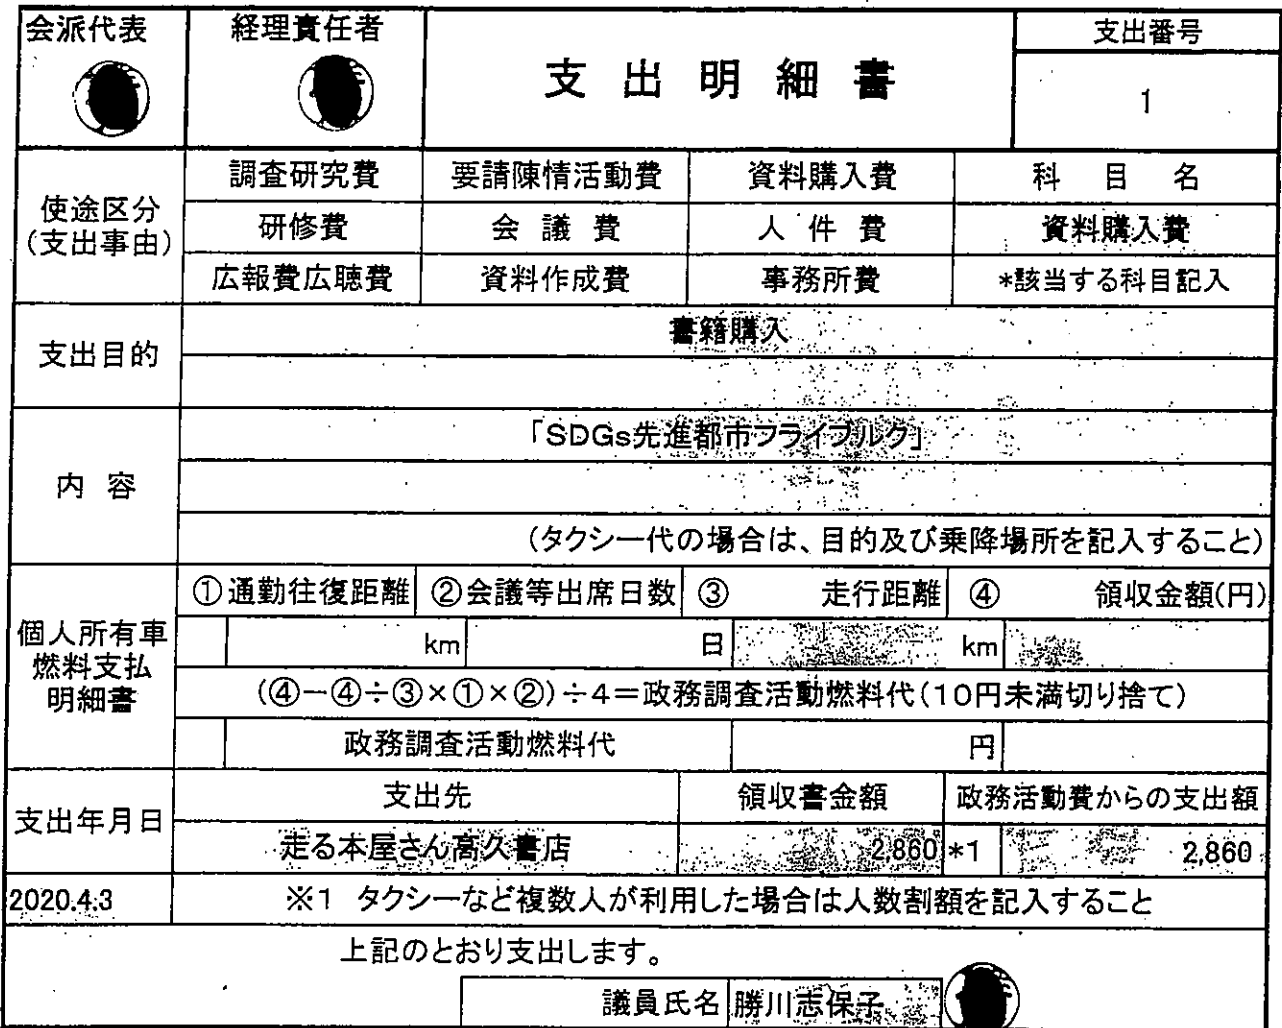 会派代表 経理責任者 支出明細書 支出番号
1
使途区分(支出事由) 調査研究費 要請陳情活動費 資料購入費 科目名
研修費 会議費 人件費 資料購入費
広報費広聴費 資料作成費 事務所費 *該当する科目記入
支出目的 書籍購入
内容 「SDGs先進都市フライブルク」
(タクシー代の場合は、目的及び乗降場所を記入すること)
個人所有車燃料支払明細書 ①通勤往復距離 ②会議等出席日数 ③ 走行距離 ④ 領収金額(円)
km 日 km
(④-④÷③×①×②)÷4=政務調査活動燃料代(10円未満切り捨て)
政務調査活動燃料代 円
支出年月日 支出先 領収書金額 政務活動費からの支出額
走る本屋さん高久書店 2,860 *1 2,860
2020.4.3 ※1 タクシーなど複数人が利用した場合は人数割額を記入すること
上記のとおり支出します。
議員氏名 勝川志保子